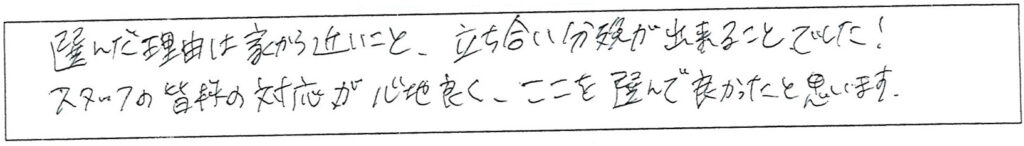 選んだ理由は家から近いこと、立ち合い分娩が出来ることでした!
スタッフの皆様の対応が心地良く、ここを選んで良かったと思います。